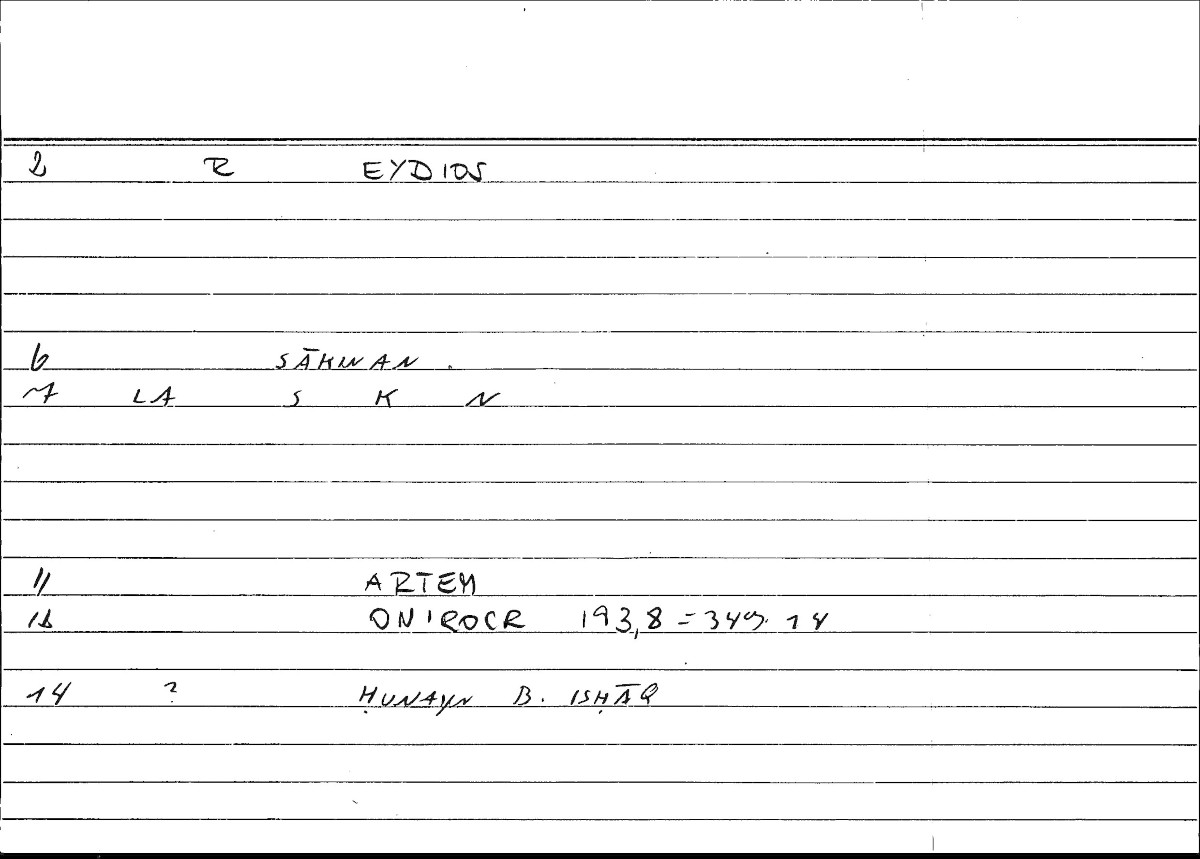 2 R EYDIOS
6 SĀKINAN .
7 LA S K N
11 ARTEM
12 ONIROCR 193,8 = 349. 14
14 ? ḤUNAYN B. ISḤĀQ